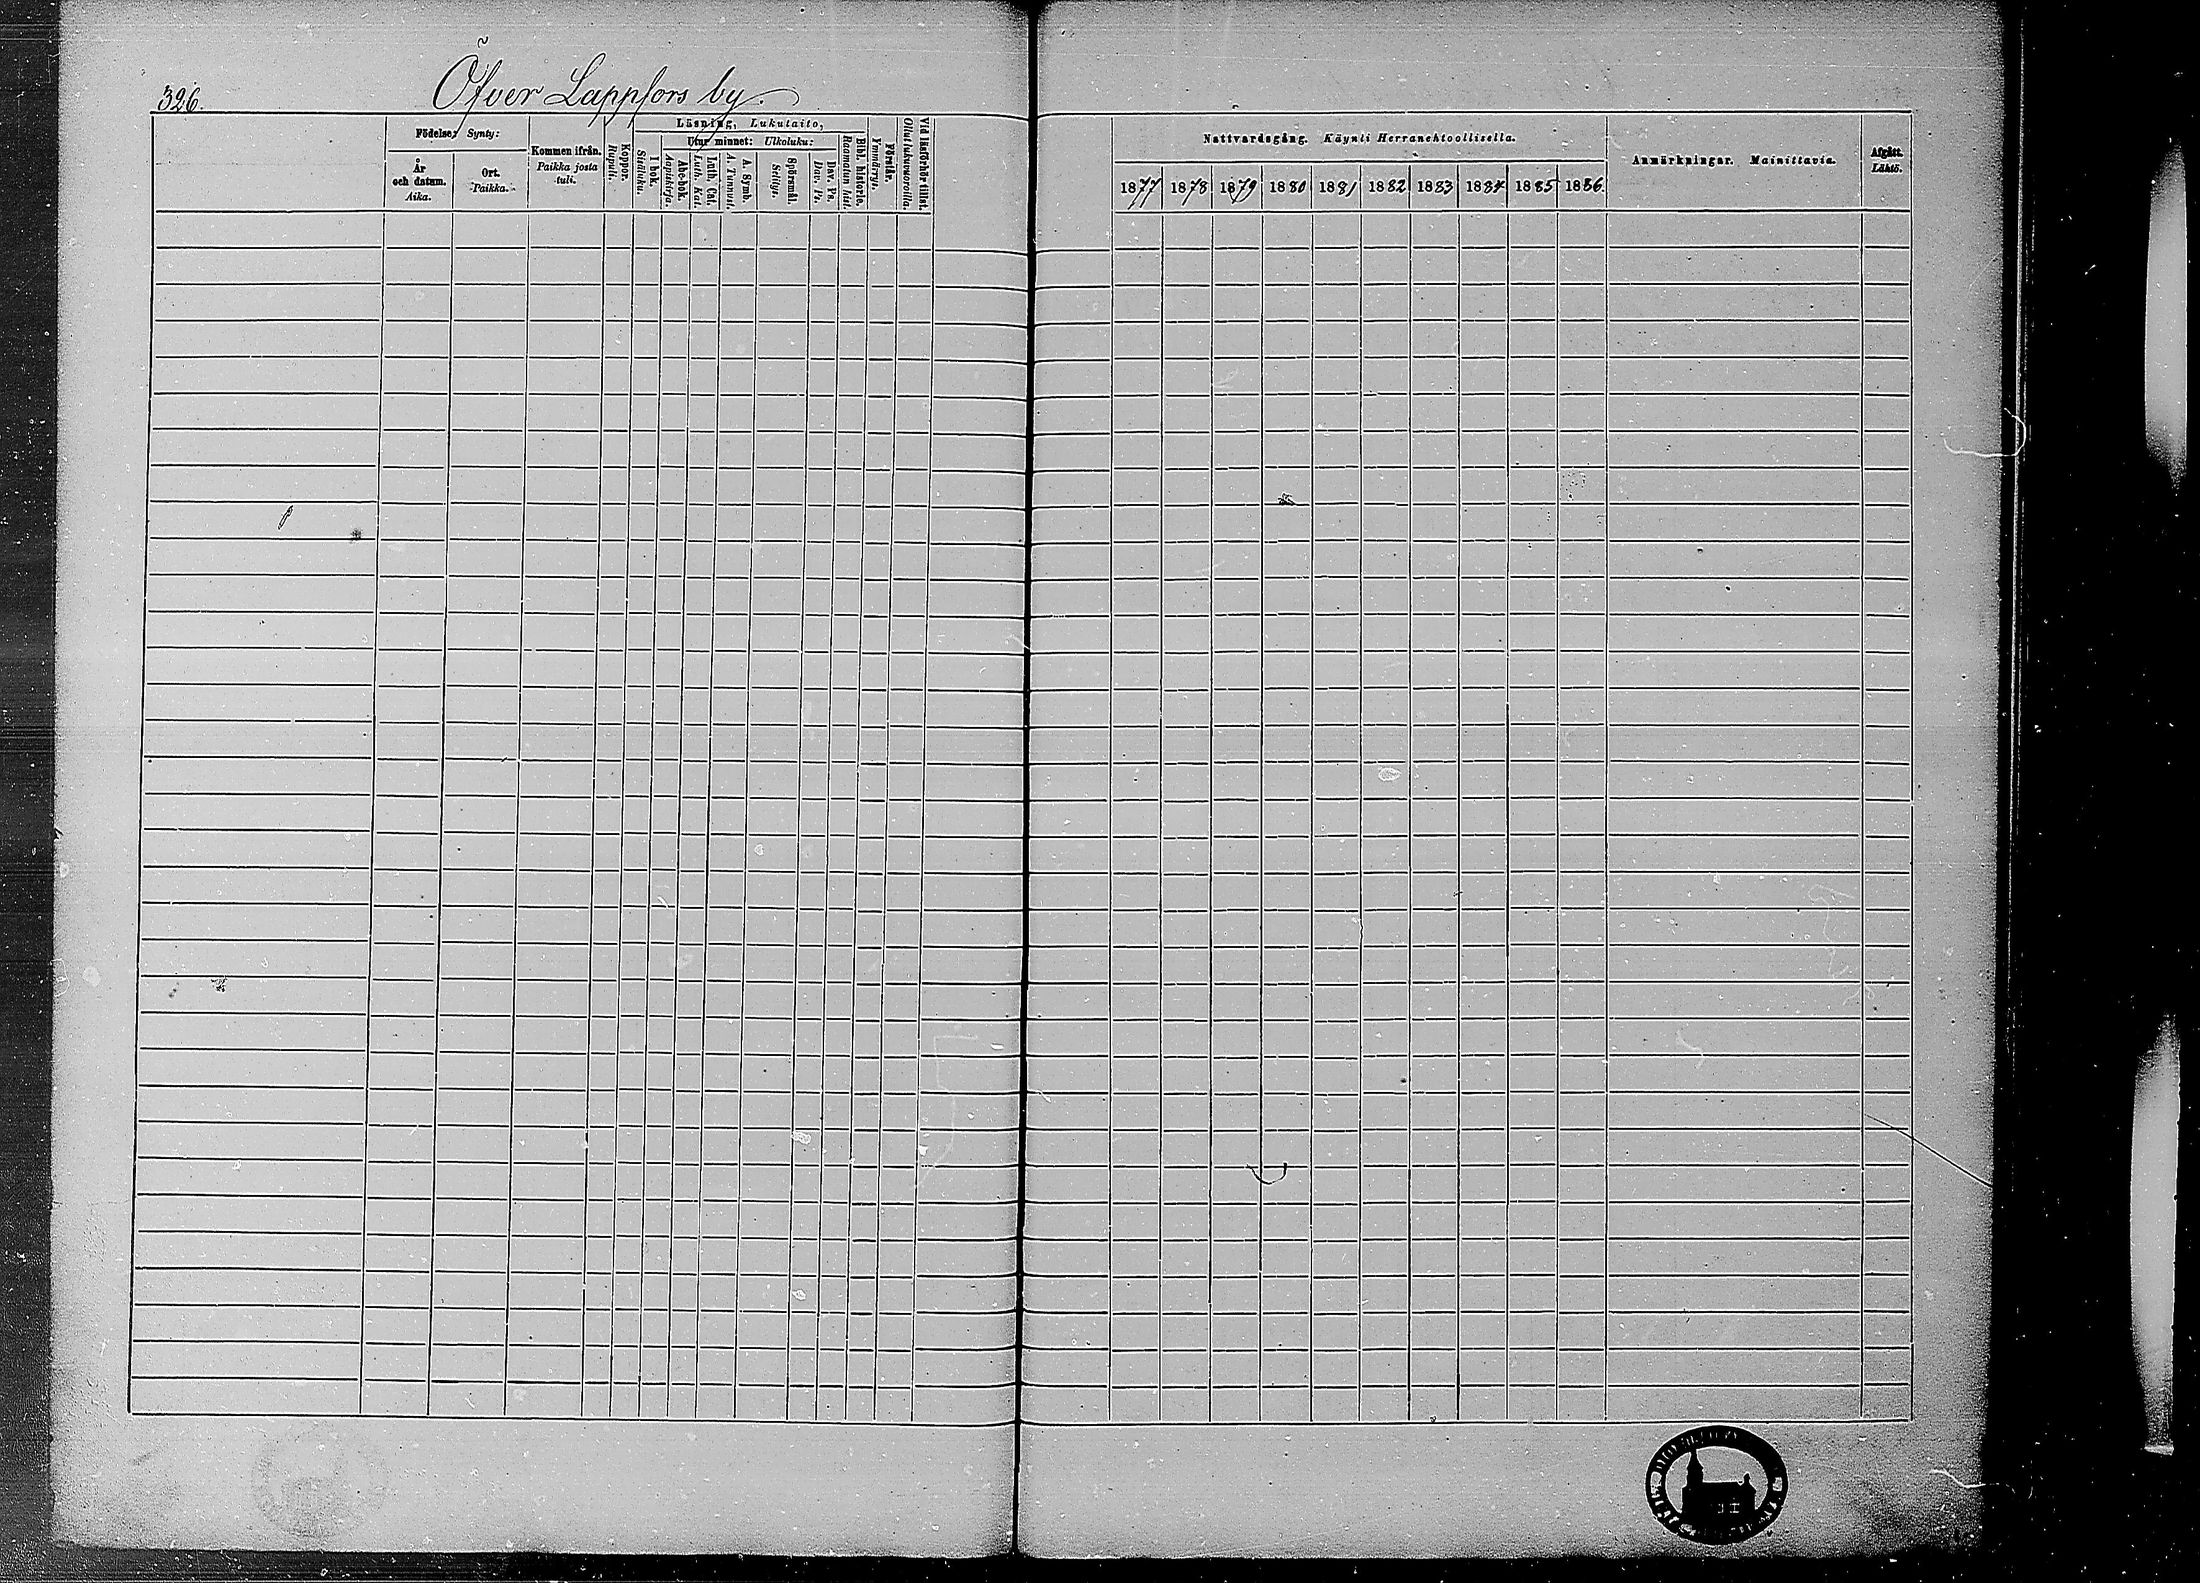 326.
Öfver Lappfors by.
Födelse: Synty:
År och datum. Aika.
Ort. Paikka.
Kommen ifrån. Paikka josta tuli.
Koppor. Rupuli.
Läsning, Lukutaito,
I bok. Sisäluku.
Utur minnet: Ulkoluku:
Abc-bok. Aapiskirja.
Luth. Cat. Luth. Kat.
A. Symb. A. Tunnust.
Spörsmål. Selitys.
Dav. Ps. Dav. Ps.
Bibl. historie. Raamatun hist.
Förstår. Ymmärrys.
Vid läsförhör tillst. Ollut lukuvuoroilla.
Nattvardsgång. Käynti Herranehtoollisella.
1877 1878 1879 1880 1881 1882 1883 1884 1885 1886.
Anmärkningar. Mainittavia.
Afgått. Lähtö.